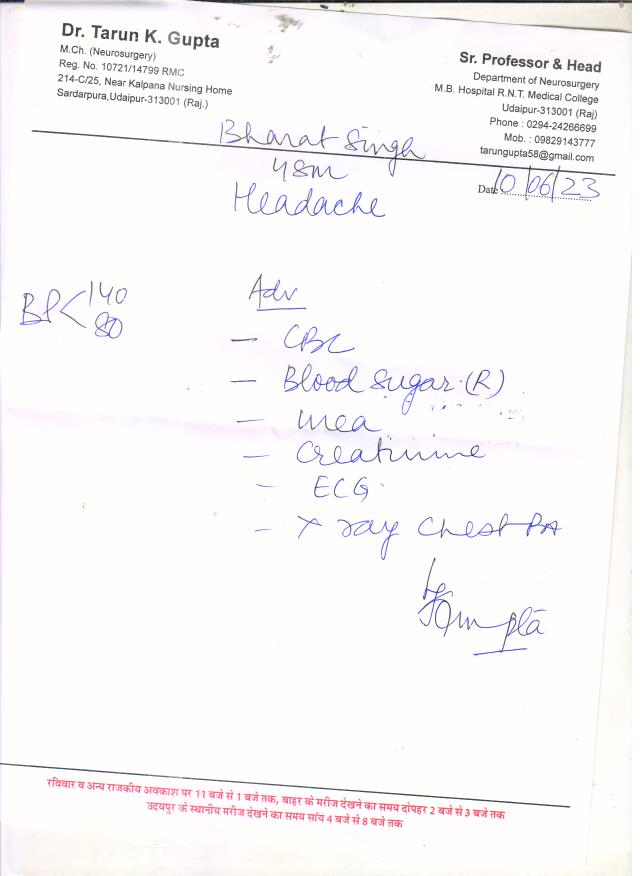 Dr. Tarun K. Gupta
M.Ch. (Neurosurgery)
Reg. No. 10721/14799 RMC
214-C/25, Near Kalpana Nursing Home
Sardarpura,Udaipur-313001 (Raj.)
Sr. Professor & Head
Department of Neurosurgery
M.B. Hospital R.N.T. Medical College
Udaipur-313001 (Raj)
Phone : 0294-24266699
Mob. : 09829143777
tarungupta58@gmail.com
Bharat Singh
48m
Date 10/06/23
Headache
BP< 140
80
Adv
- CBC
- Blood Sugar (R)
- urea
- Creatinine
- ECG
- X ray Chest PA
Gupta
रविवार व अन्य राजकीय अवकाश पर 11 बजे से 1 बजे तक, बाहर के मरीज देखने का समय दोपहर 2 बजे से 3 बजे तक
उदयपुर के स्थानीय मरीज देखने का समय सांय 4 बजे से 8 बजे तक